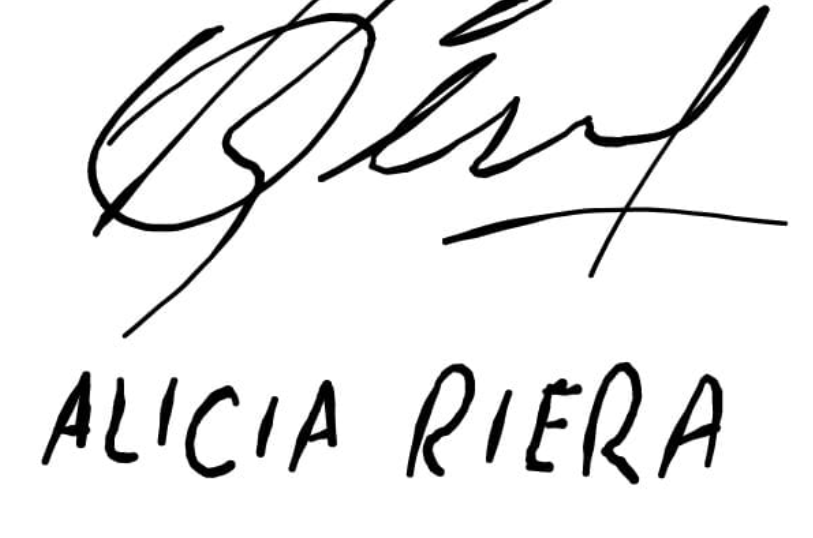 ALICIA RIERA